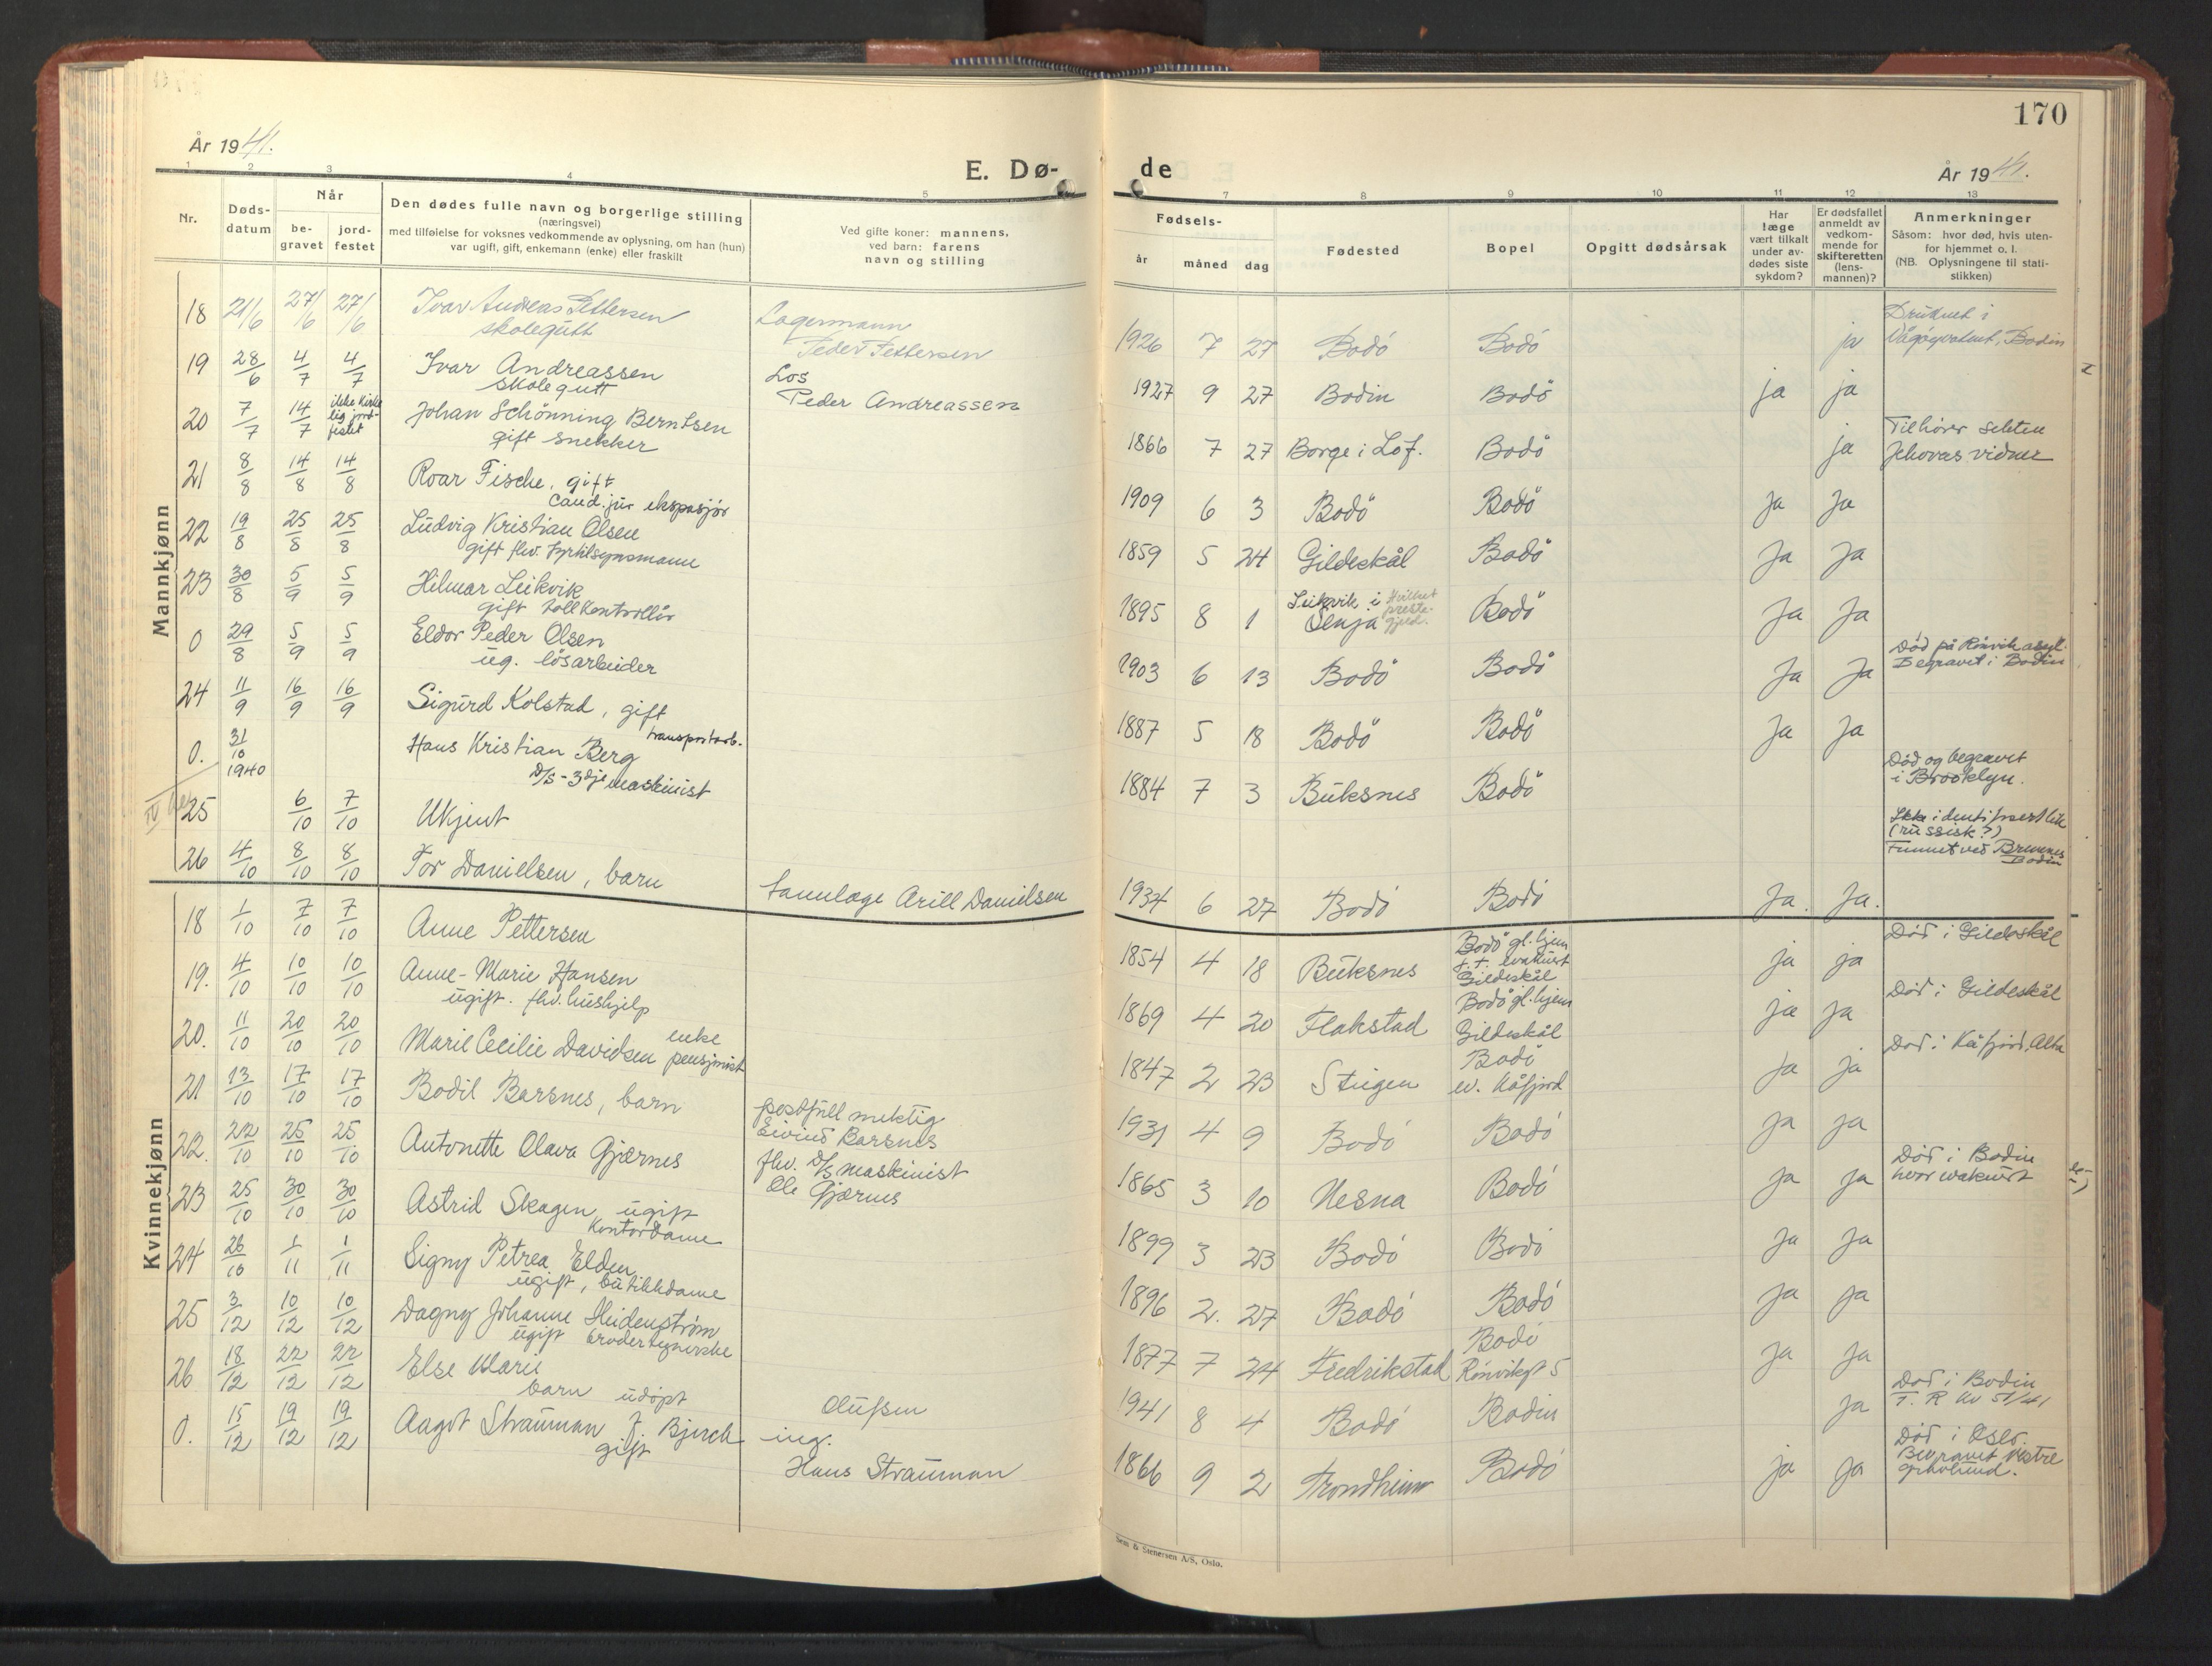 170
År 1941.
E. Dø-
de
År 1941.
1 2 3 4 5 7 8 9 10 11 12 13
Nr.
Døds-
datum
Når
be-
gravet
jord-
festet
Den dødes fulle navn og borgerlige stilling
(næringsvei)
med tilføielse for voksnes vedkommende av oplysning, om han (hun)
var ugift, gift, enkemann (enke) eller fraskilt
Ved gifte koner: mannens,
ved barn: farens
navn og stilling
Fødsels-
år måned dag
Fødested
Bopel
Opgitt dødsårsak
Har
læge
vært tilkalt
under av-
dødes siste
sykdom?
Er dødsfallet
anmeldt av
vedkom-
mende for
skifteretten
(lens-
mannen)?
Anmerkninger
Såsom: hvor død, hvis uten-
for hjemmet o. l.
(NB. Oplysningene til stati-
stikken)
Mannkjønn
18 21/6 27/6 27/6 Ivar Andreas Pettersen
skolegutt
Lagermann
Peder Pettersen
1926 7 27 Bodö Bodö ja
Druknet i
Vågöyvatnet, Bodin
19 28/6 4/7 4/7 Ivar Andreassen
skolegutt
Los
Peder Andreassen
1927 9 27 Bodin Bodö ja ja
20 7/7 14/7 ikke kirke
lig jord-
festet
Johan Schönning Berntsen
gift snekker
1866 7 27 Borge i Lof. Bodö ja
Tilhörer sekten
Jehovas vidner
21 8/8 14/8 14/8 Roar Fische, gift
Cand. jur eksposjör
1909 6 3 Bodö Bodö Ja Ja
22 19/8 25/8 25/8 Ludvig Kristian Olsen
gift fhv. fyrtilsynsmann
1859 5 24 Gildeskål Bodö Ja Ja
23 30/8 5/9 5/9 Hilmar Leikvik
gift tollkontrollör
1895 8 1 Leikvik i
Senja
Bodö Ja Ja
0 29/8 5/9 5/9 Eldor Peder Olsen
ug. lösarbeider
1903 6 13 Bodö Bodö Ja Ja
Död på Rönvik asyl.
Begravet i Bodin
24 11/9 16/9 16/9 Sigurd Kolstad, gift
transportarb.
1887 5 18 Bodö Bodö Ja Ja
0. 31/10 1940 Hans Kristian Berg
D/s - 3dje maskinist
1884 7 3 Buksnes Bodö
Död og begravet
i Brooklyn.
25 6/10 7/10 Ukjent
Ikke identifisert lik
(russisk?)
Funnet ved Bremnes
Bodin
26 4/10 8/10 8/10 Tor Danielsen, barn
tannlæge Arill Danielsen
1934 6 27 Bodö Bodö Ja. Ja.
Kvinnekjønn
18 1/10 7/10 7/10 Anne Pettersen
1854 4 18 Buksnes Bodö gl. hjem
f.t. evakuert
Gildeskål
ja ja Död i Gildeskål
19. 4/10 10/10 10/10 Anne-Marie Hansen
ugift. fhv. hushjelp
1869 4 20 Flakstad Bodö gl. hjem
Gildeskål
ja ja Död i Gildeskål
20. 11/10 20/10 20/10 Marie Cecilie Davidsen enke
pensjonist
1847 2 23 Steigen Bodö
ev. Kåfjord
Ja ja Död i Kåfjord, Alta
21 13/10 17/10 17/10 Bodil Barsnes, barn
postfullmektig
Eivind Barsnes
1931 4 9 Bodö Bodö ja ja
22. 22/10 25/10 25/10 Antonette Olava Gjærnes
fhv. D/s maskinist
Ole Gjærnes
1865 3 10 Nesna Bodö ja ja
Död i Bodin
hvor evakuert
23 25/10 30/10 30/10 Astrid Skagen, ugift
Kontordame
1899 3 23 Bodö Bodö ja ja
24 26/10 1/11 1/11 Signy Petrea Elden
ugift, butikkdame
1896 2. 27 Bodö Bodö ja ja
25 3/12 10/12 10/12 Dagny Johanne Heidenström
ugift broderlynerske
1877 7 24 Fredrikstad Bodö
Rönvikgt 5
ja ja
26 18/12 22/12 22/12 Else Marie
barn udöpt
Olufsen
1941 8 4 Bodö Bodin ja
Död i Bodin
T. R. nr 51/41
0. 15/12 19/12 19/12 Aagot Strauman f. Bjerch
gift
ing.
Hans Strauman
1866 9 2 Trondheim Bodö ja ja
Död i Oslo.
Begravet Vestre
gravlund.
Sem & Stenersen A/S, Oslo.